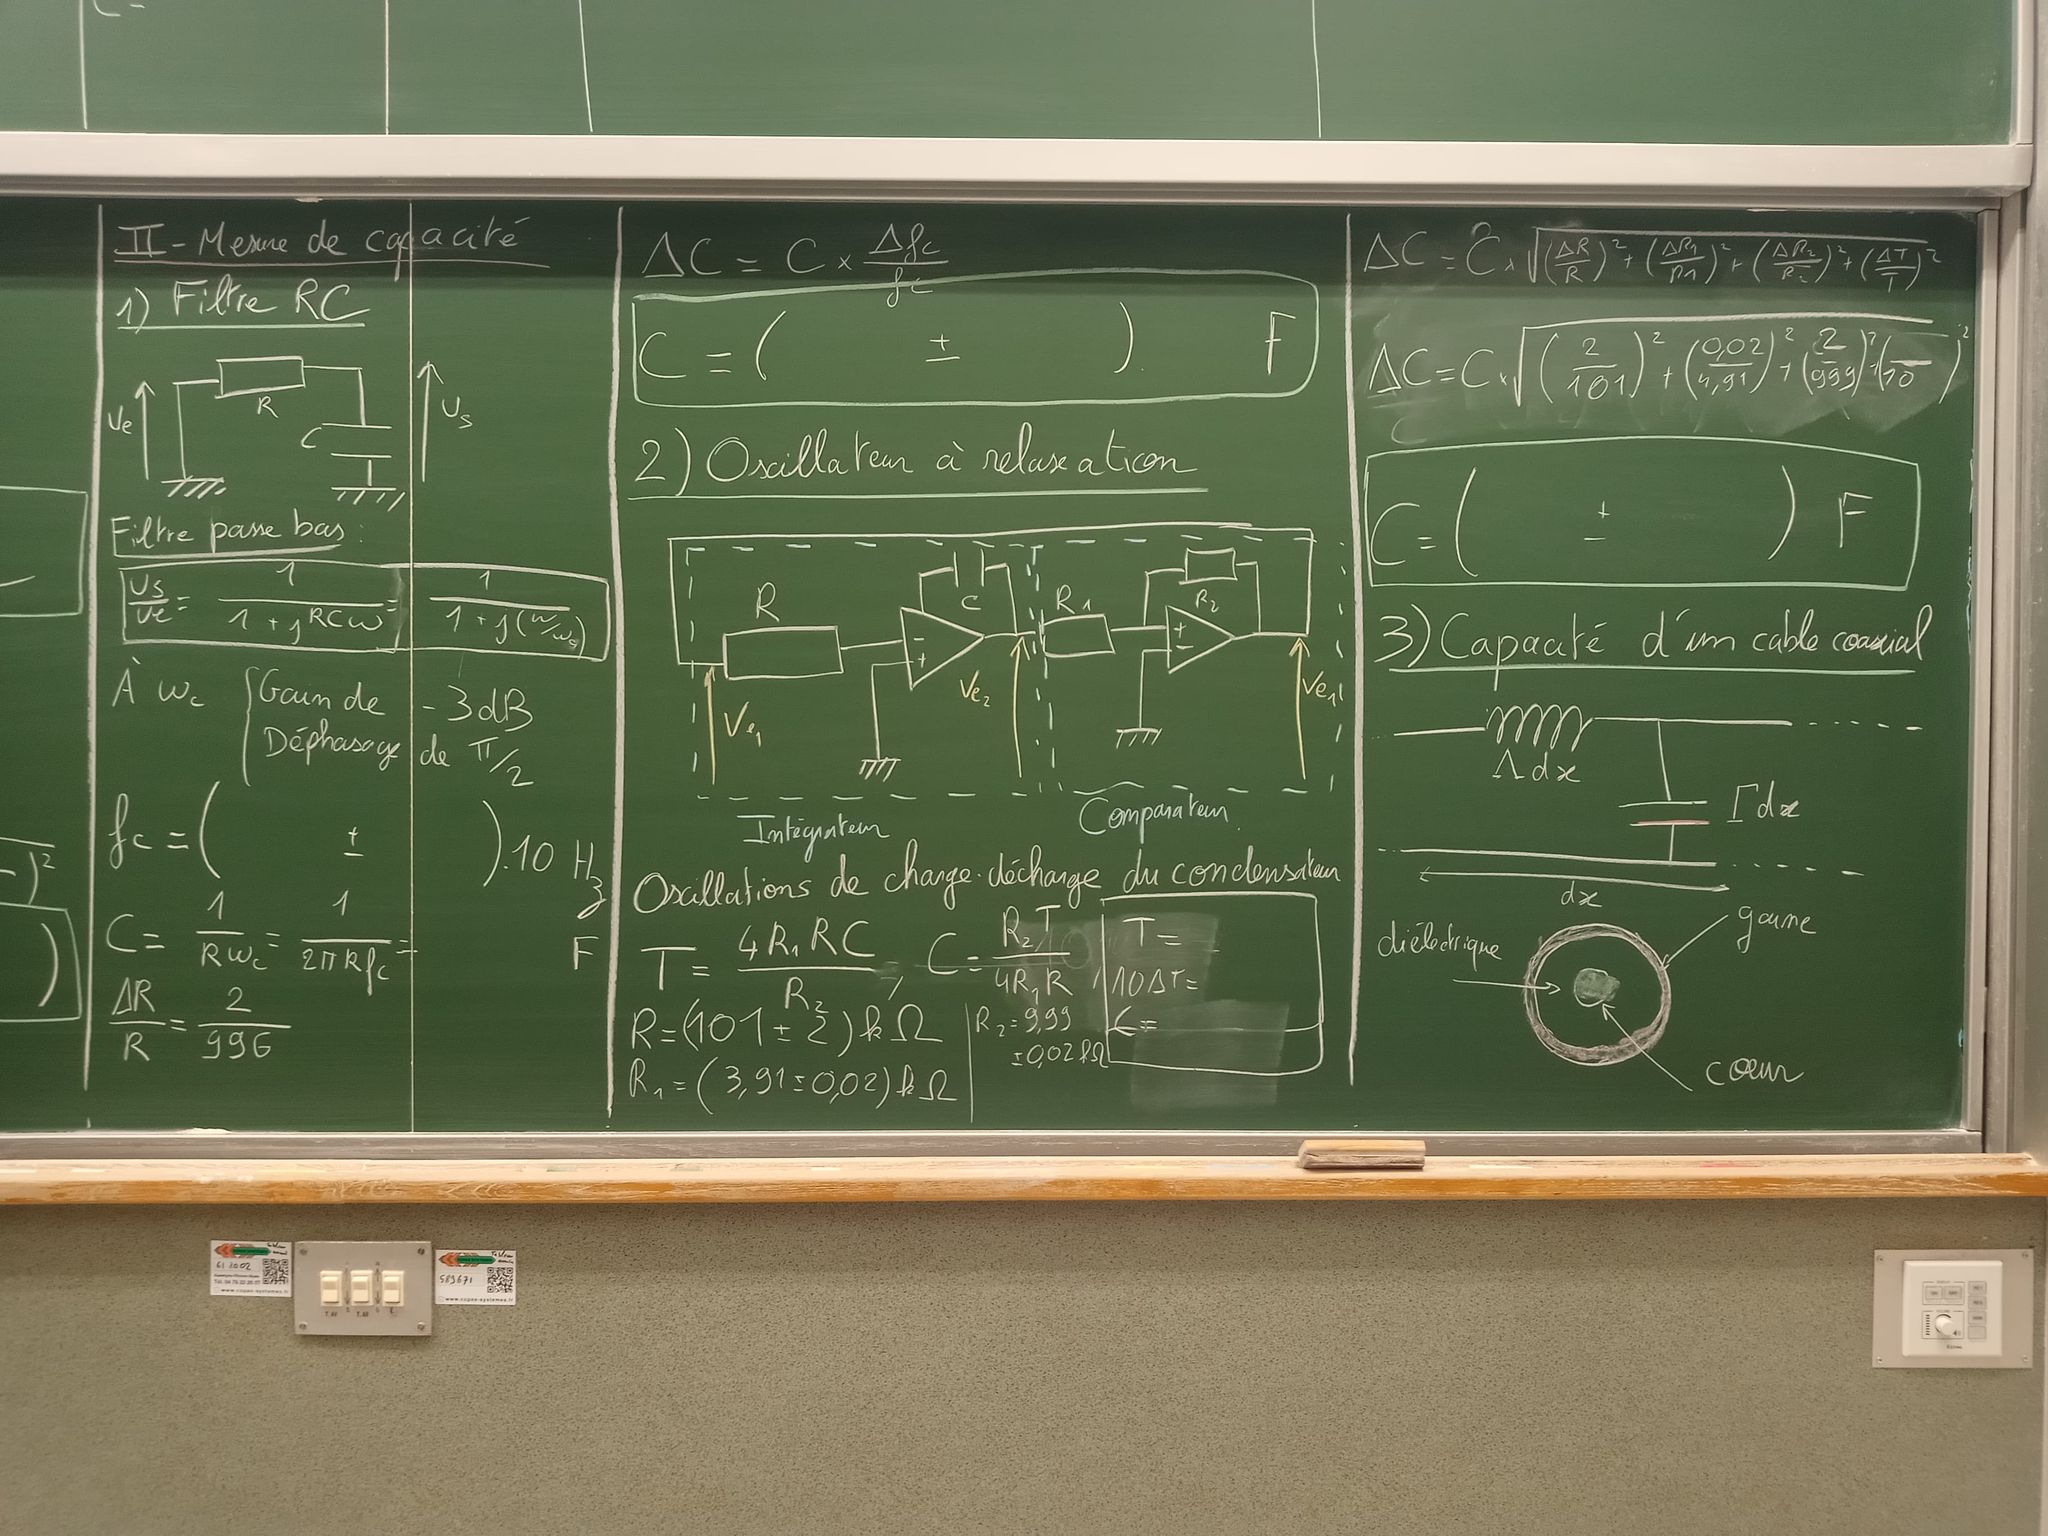 II - Mesure de capacité
1) Filtre RC
Ve
R
C
Us
Filtre passe bas :
Us/Ve = 1/(1 + jRCω) = 1/(1 + j(ω/ωc))
À ωc { Gain de - 3 dB
Déphasage de π/2
fc = ( ± ).10 Hz
C = 1/(Rωc) = 1/(2πRfc) = F
ΔR/R = 2/996
ΔC = C × Δfc/fc
C = ( ± ). F
2) Oscillateur à relaxation
R
C
R1
R2
- +
+ -
Ve1
Ve2
Ve1
Intégrateur
Comparateur
Oscillations de charge-décharge du condensateur
T = 4R1RC/R2, C = R2T/4R1R
R = (101 ± 2) kΩ
R1 = (3,91 ± 0,02) kΩ
R2 = 9,99
± 0,02 kΩ
T =
10ΔT =
C =
ΔC = C × √((ΔR/R)² + (ΔR1/R1)² + (ΔR2/R2)² + (ΔT/T)²
ΔC = C × √((2/101)² + (0,02/4,91)² + (2/999)² + (—/10)²
C = ( ± ) F
3) Capacité d'un cable coaxial
Λdx
Γdx
dx
diélectrique
gaine
cœur
61 2002
589671
www.copas-systemes.fr